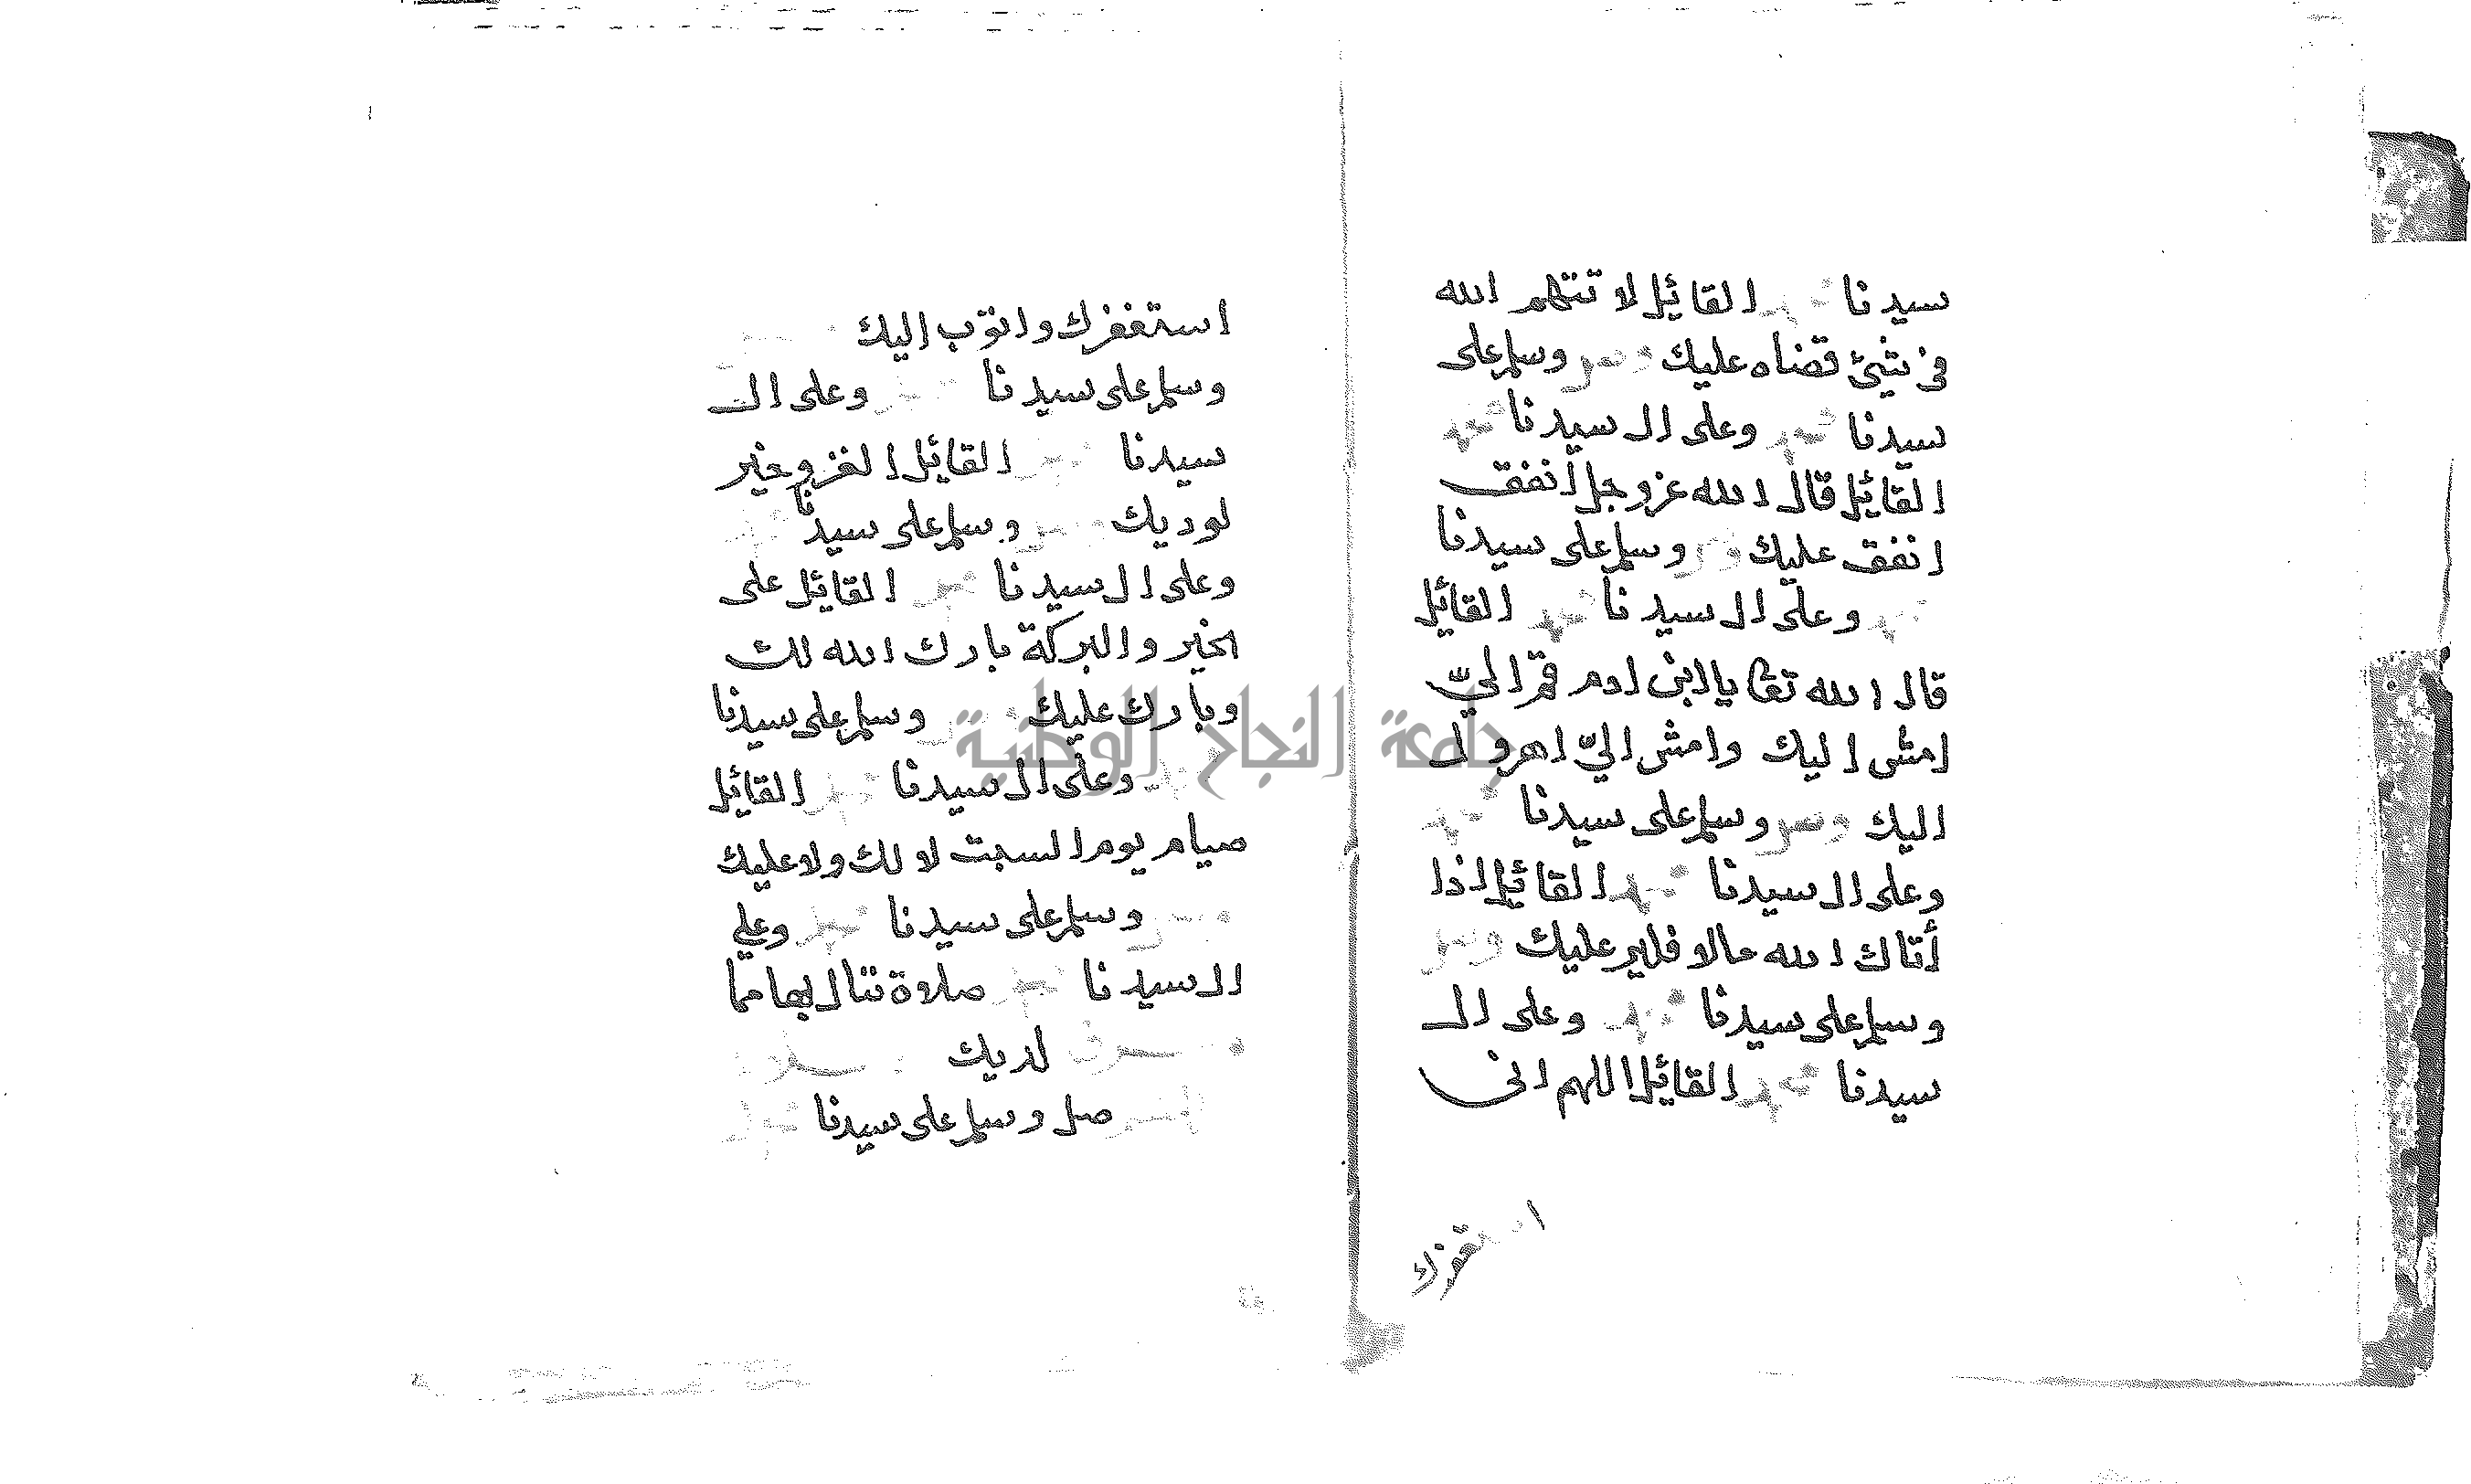 سيدنا محمد القائل لا تتهم الله
فى شئ قضاه عليك وصل وسلم على
سيدنا محمد وعلى ال سيدنا محمد
القائل قال الله عز وجل انفق
انفق عليك وصل وسلم على سيدنا
محمد وعلى ال سيدنا محمد القائل
قال الله تعا يا ابن ادم قم اليّ
امشى اليك وامش اليّ اهرول
اليك وصل وسلم على سيدنا محمد
وعلى ال سيدنا محمد القائل اذا
أتاك الله مالا فلير عليك وصل
وسلم على سيدنا محمد وعلى ال
سيدنا محمد القائل اللهم انى
استغفرك
استغفرك واتوب اليك
وسلم على سيدنا محمد وعلى ال
سيدنا محمد القائل الغزو خير
لوديك وصل وسلم على سيدنا
وعلى ال سيدنا محمد القائل على
الخير والبركة بارك الله لك
وبارك عليك وسلم على سيدنا
وعلى ال سيدنا محمد القائل
صيام يوم السبت لا لك ولا عليك
وصل وسلم على سيدنا محمد وعلى
ال سيدنا محمد صلاة تنال بها مما
لديك
اللهم صل وسلم على سيدنا محمد
جامعة النجاح الوطنية